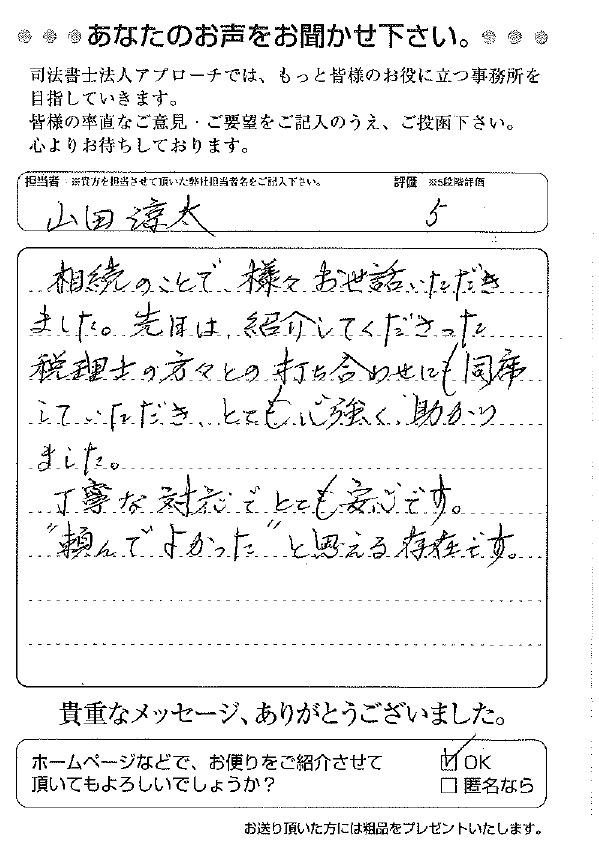 あなたのお声をお聞かせ下さい。
司法書士法人アプローチでは、もっと皆様のお役に立つ事務所を
目指していきます。
皆様の率直なご意見・ご要望をご記入のうえ、ご投函下さい。
心よりお待ちしております。
担当者 ※貴方を担当させて頂いた弊社担当者名をご記入下さい。 評価 ※5段階評価
山田淳太 5
相続のことで、様々お世話いただき
ました。先日は、紹介してくださった
税理士の方々との打ち合わせにも同席
していただき、とても心強く、助かり
ました。
丁寧な対応でとても安心です。
"頼んでよかった"と思える存在です。
貴重なメッセージ、ありがとうございました。
ホームページなどで、お便りをご紹介させて
頂いてもよろしいでしょうか？
OK
匿名なら
お送り頂いた方には粗品をプレゼントいたします。